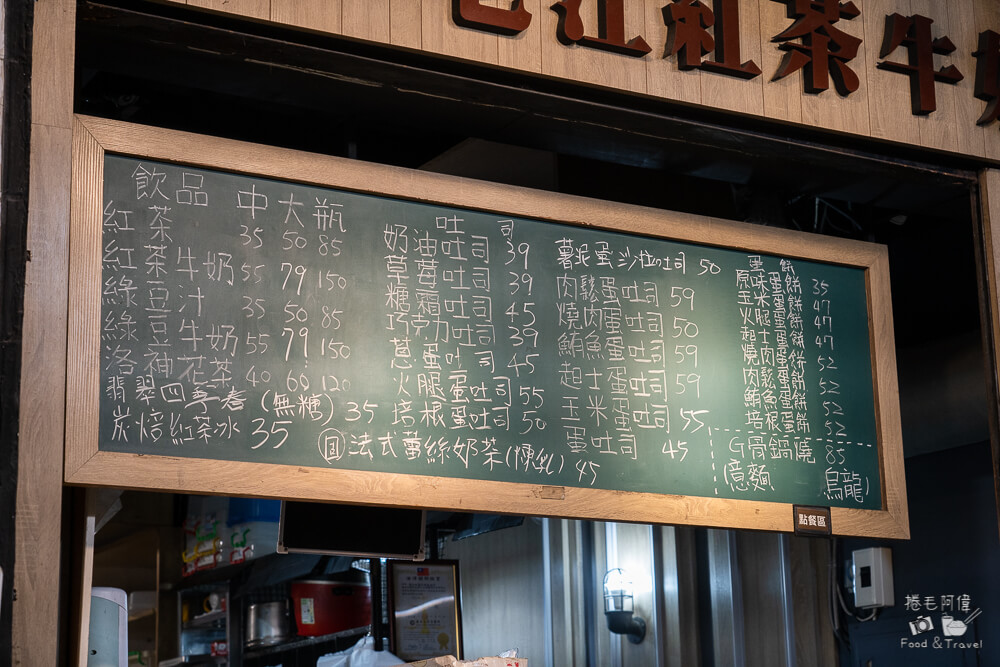 江紅茶牛
飲品 中 大 瓶
紅茶 35 50 85
紅茶牛奶 55 79 150
綠豆汁 35 50 85
綠豆牛奶 55 79 150
洛神花茶 40 60 120
翡翠四季春(無糖) 35
炭焙紅茶冰 35
吐司
奶油吐司 39
草莓吐司 39
糖霜吐司 45
巧克力吐司 39
蔥蛋吐司 45
火腿蛋吐司 55
培根蛋吐司 50
法式蕾絲奶茶(煉乳) 45
薯泥蛋沙拉吐司 50
肉鬆蛋吐司 59
燒肉蛋吐司 50
鮪魚蛋吐司 59
起士蛋吐司 59
玉米蛋吐司 55
蛋吐司 45
蛋餅
原味蛋餅 35
玉米蛋餅 47
火腿蛋餅 47
起士蛋餅 52
燒肉蛋餅 52
肉鬆蛋餅 52
鮪魚蛋餅 52
培根蛋餅
G骨鍋燒 85
(意麵 烏龍)
點餐區
捲毛阿偉
Food & Travel